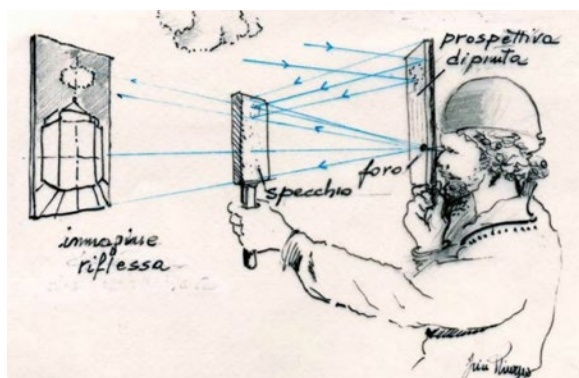 prospettiva
dipinta
foro
specchio
immagine
riflessa